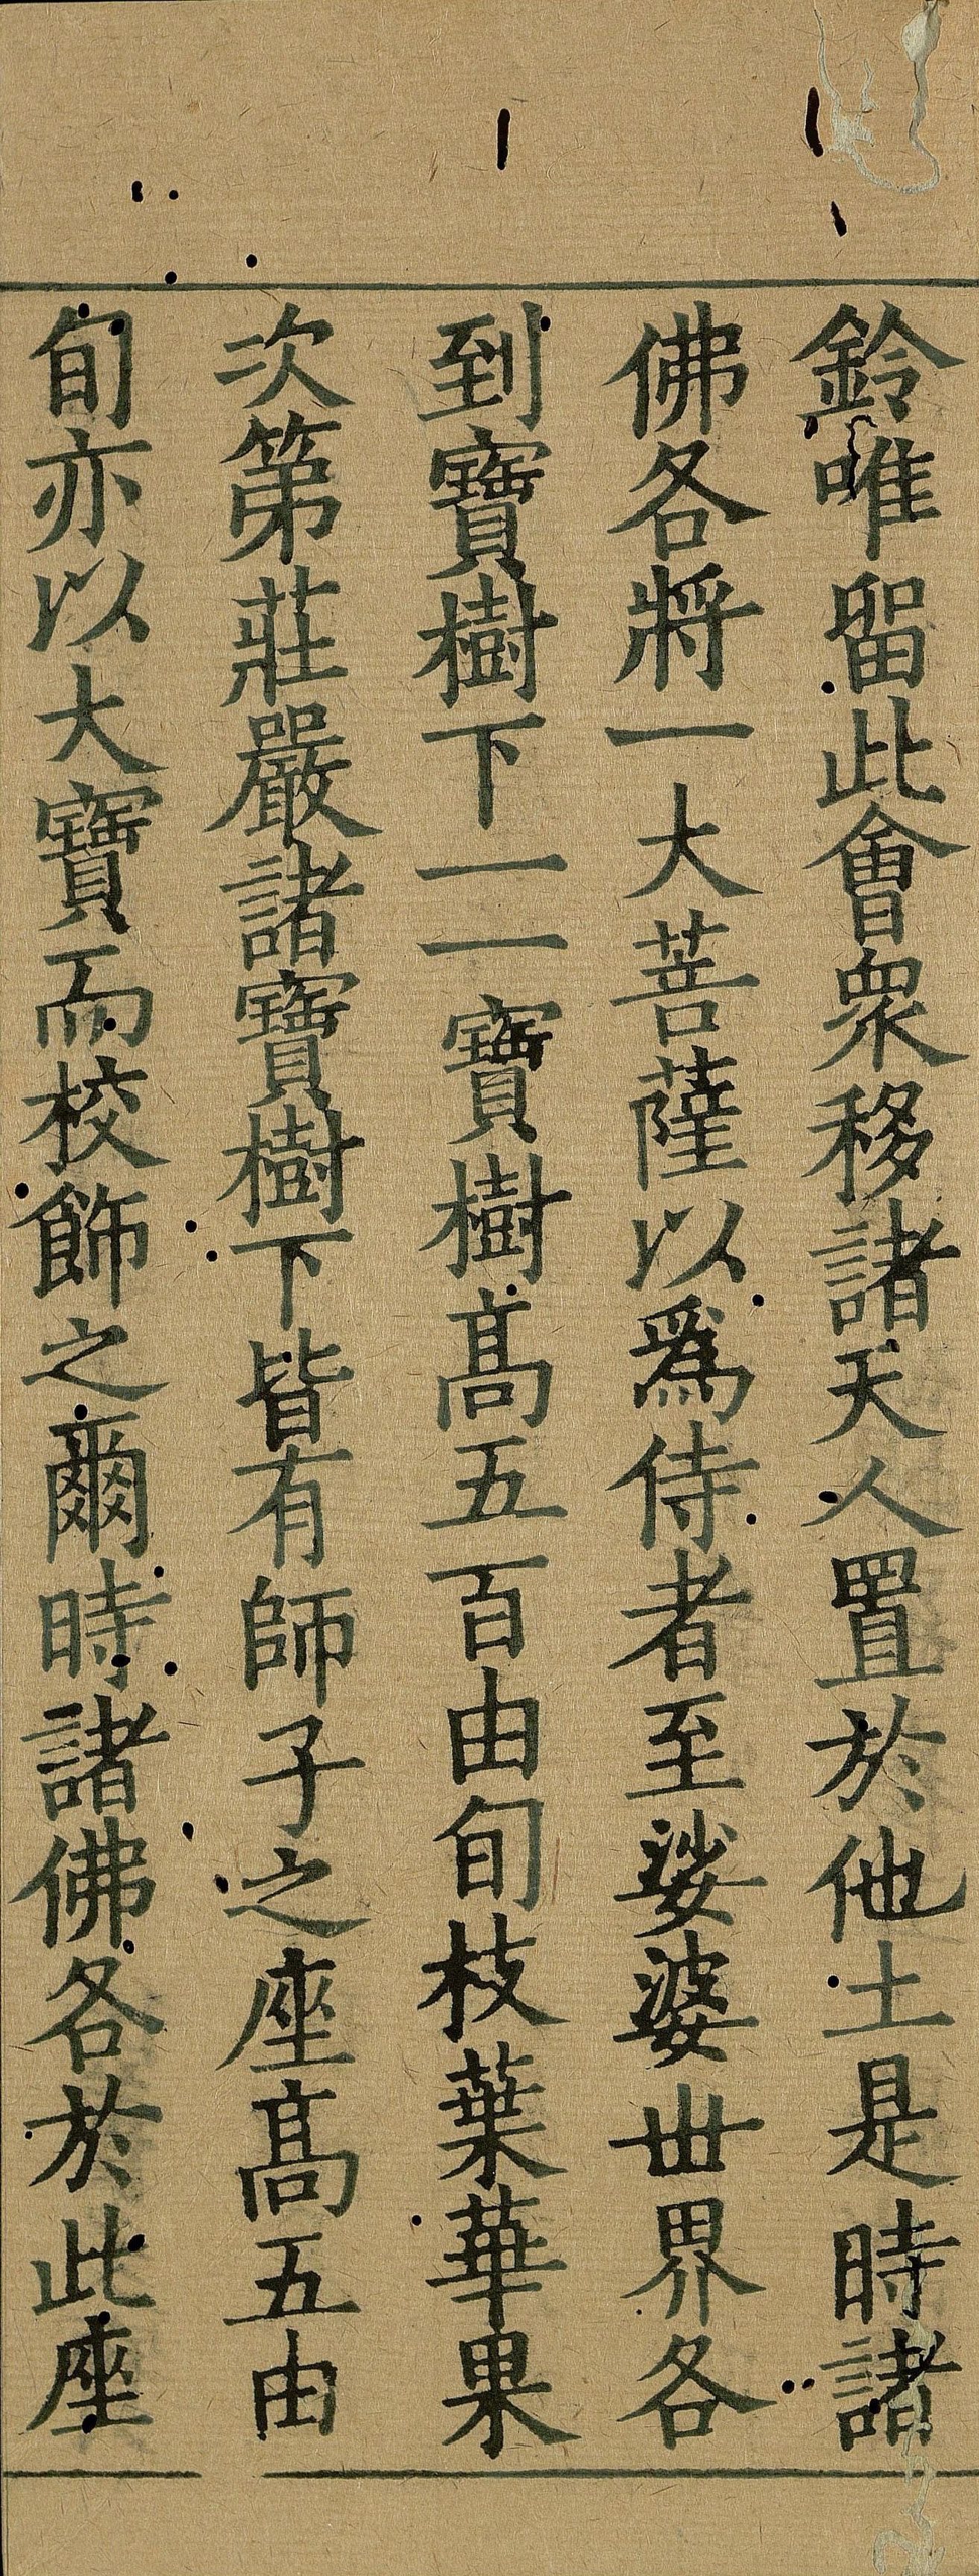 鈴唯留此會衆移諸天人置於他土是時諸
佛各將一大菩薩以爲侍者至娑婆世界各
到寶樹下一一寶樹髙五百由旬枝葉華果
次第莊嚴諸寶樹下皆有師子之座髙五由
旬亦以大寶而校飾之爾時諸佛各於此座